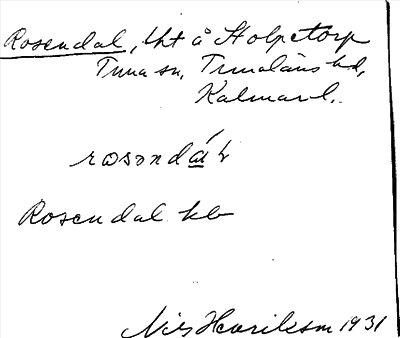 Rosendal, lht å Stolpetorp
Tuna sn, Tunaläns hd,
Kalmar l.
rosəndá̱l
Rosendal kb
Nils Henrikson 1931